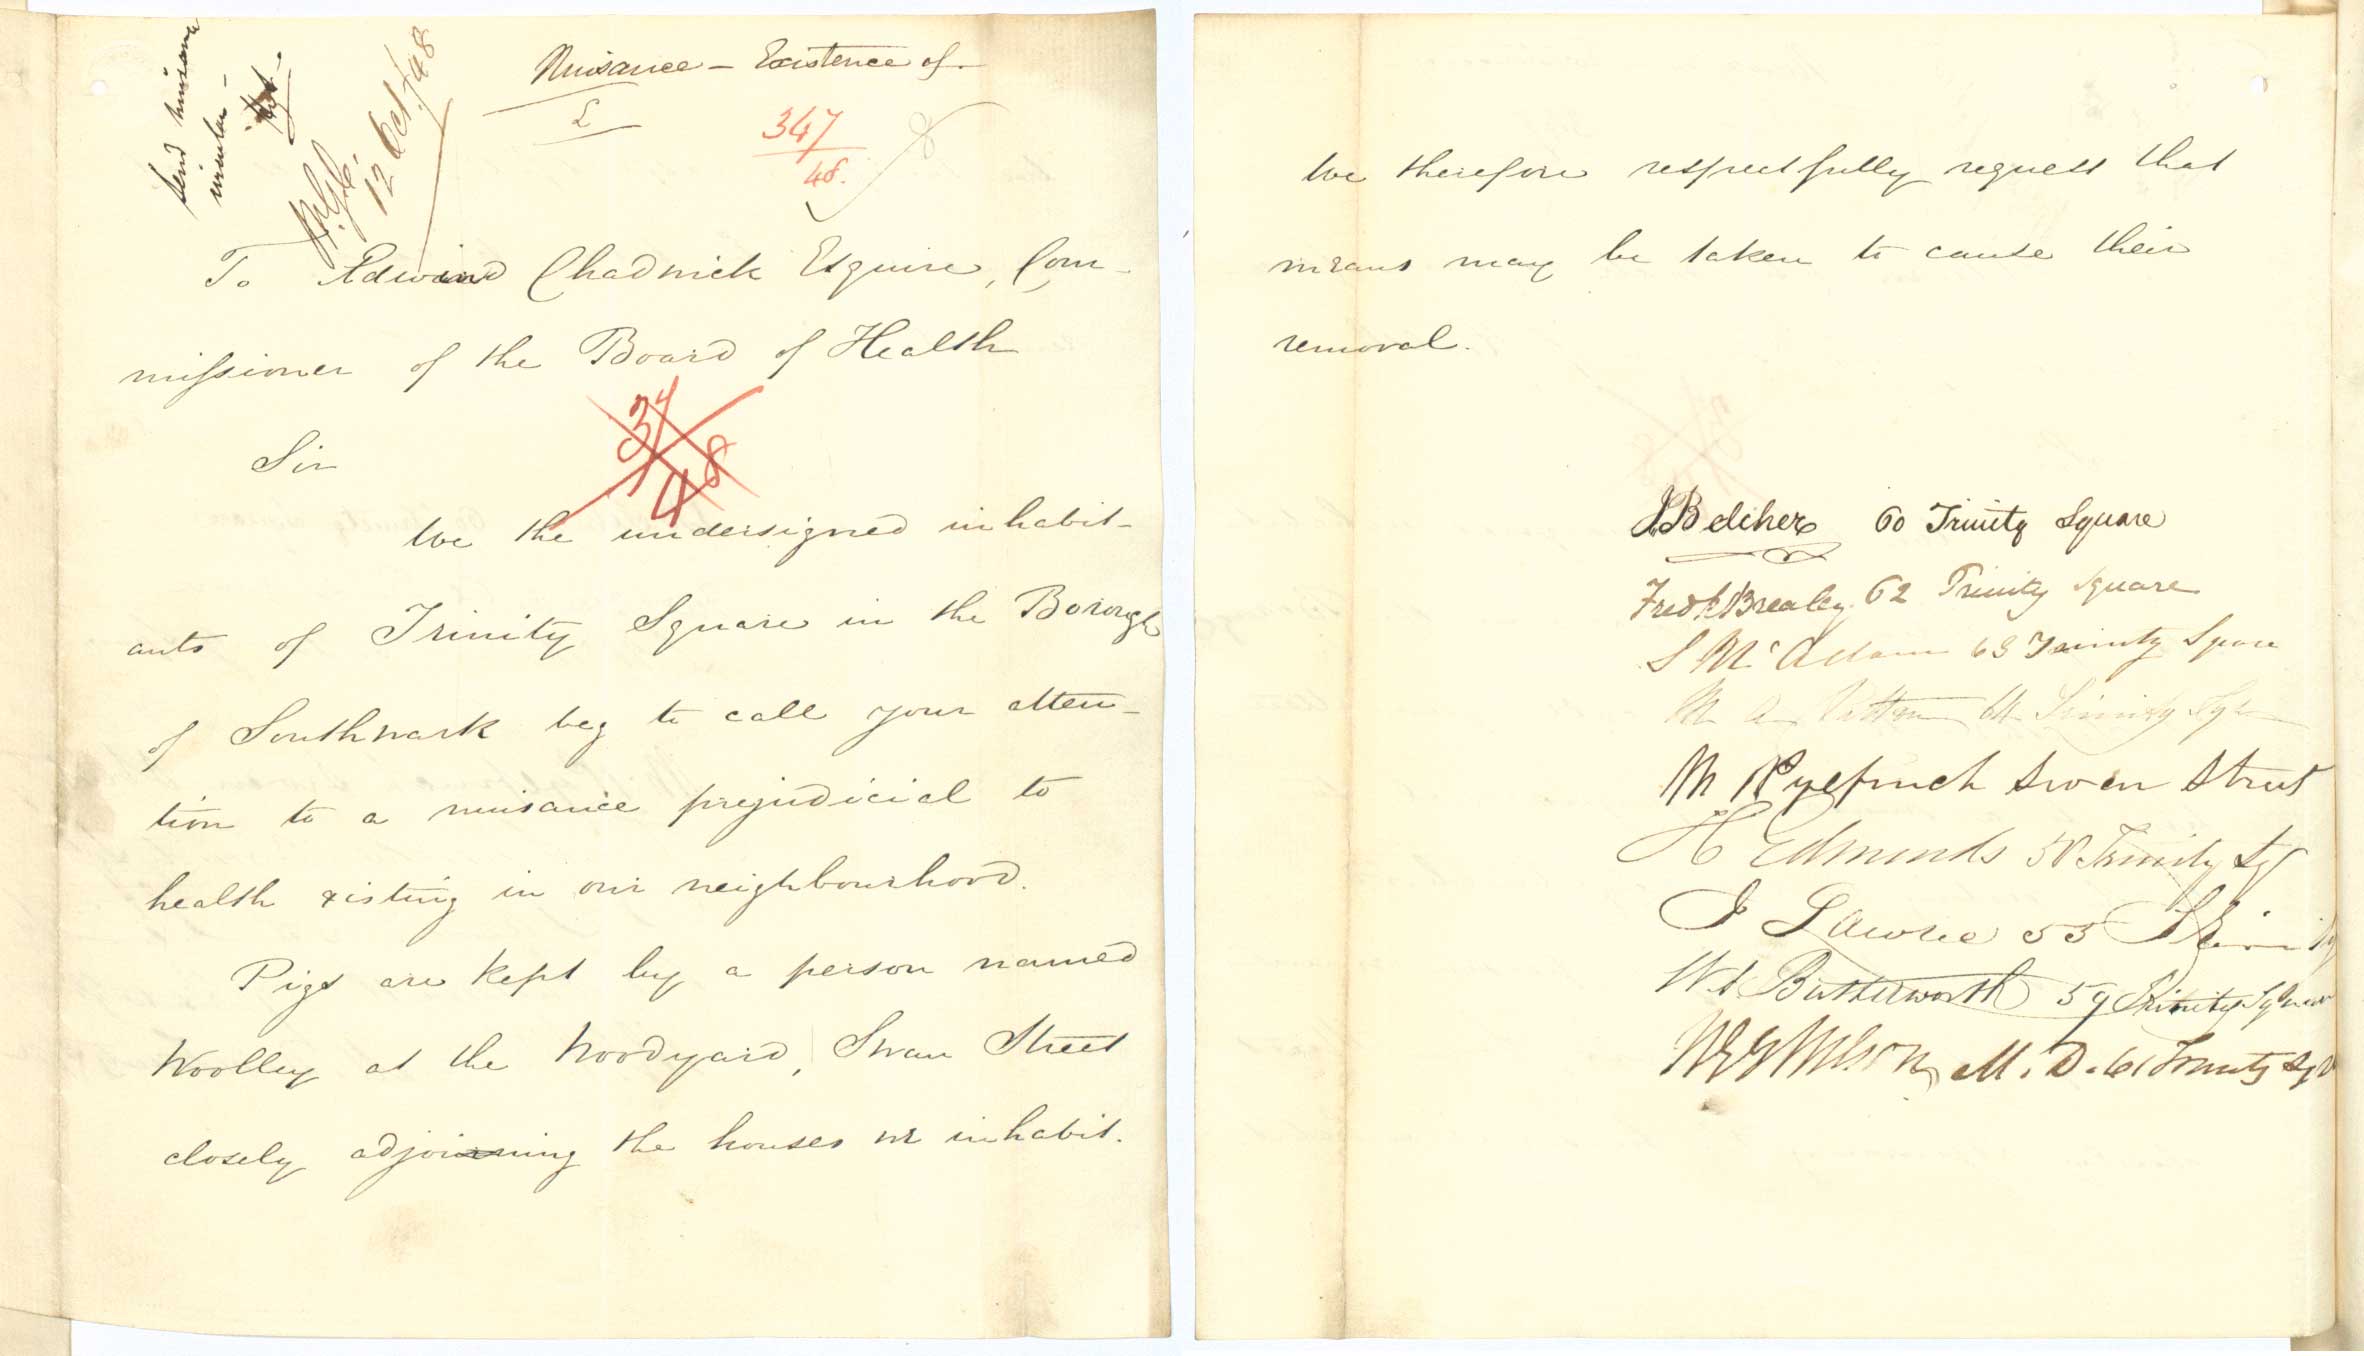 Nuisance - Existence of -
£
347
48.
Send nuisance
circular -
12 Oct./48
To Edwin Chadwick Esquire, Com-
missioner of the Board of Health
Sir
37
48
We the undersigned inhabit-
ants of Trinity Square in the Borough
of Southwark beg to call your atten-
tion to a nuisance prejudicial to
health existing in our neighbourhood.
Pigs are kept by a person named
Woolley at the Woodyard, Swan Street
closely adjoining the houses we inhabit.
We therefore respectfully request that
means may be taken to cause their
removal.
J Belcher 60 Trinity Square
Fredk Brealey. 62 Trinity Square
S McAdam 63 Trinity Square
M A 64 Trinity Sqre
M Pyefinch Swan Street
H Edmunds 58 Trinity Sq
J Lawrie 55 Trinity Sq
Wm Butterworth 59 Trinity Square
Wilson M.D. 61 Trinity Sqr